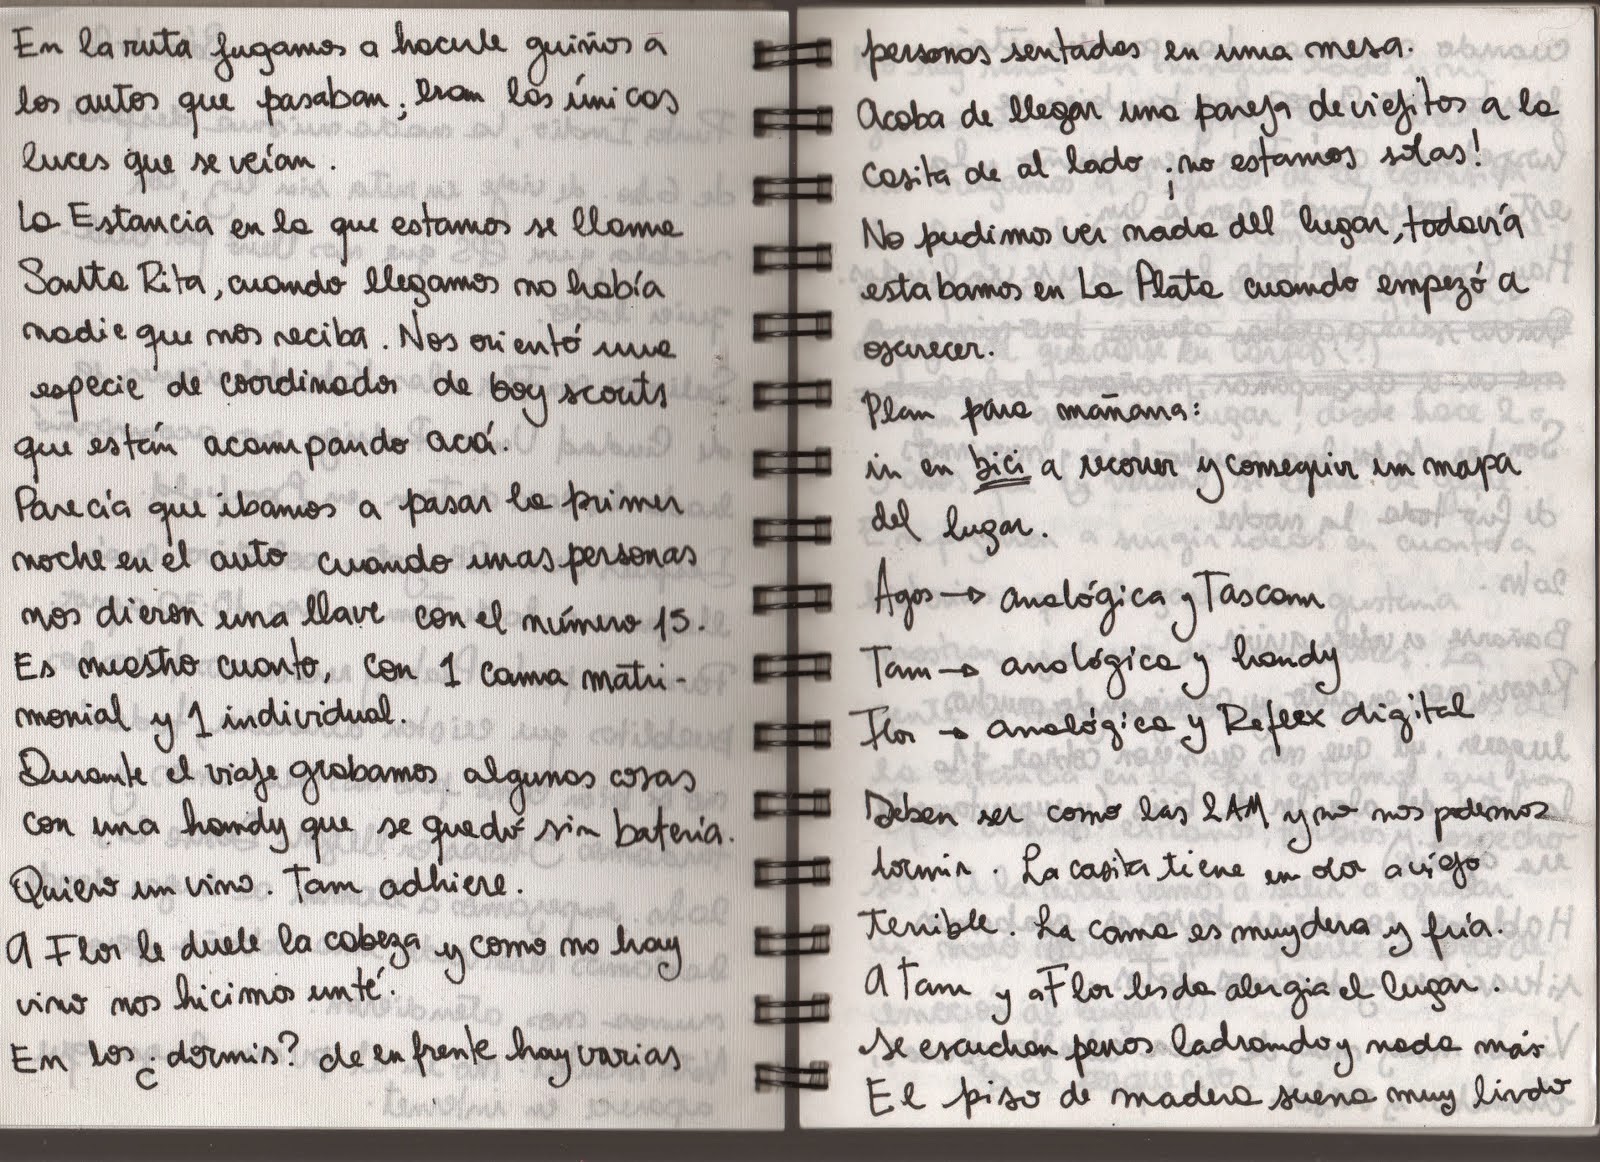 En la ruta jugamos a hacerle guiños a
los autos que pasaban; eran las únicas
luces que se veían.
La Estancia en la que estamos se llama
Santa Rita, cuando llegamos no había
nadie que nos reciba. Nos orientó una
especie de coordinador de boy scouts
que están acampando acá.
Parecía que ibamos a pasar la primer
noche en el auto cuando unas personas
nos dieron una llave con el número 15.
Es nuestro cuarto, con 1 cama matri-
monial y 1 individual.
Durante el viaje grabamos algunas cosas
con una handy que se quedó sin batería.
Quiero un vino. Tam adhiere.
A Flor le duele la cabeza y como no hay
vino nos hicimos un té.
En los ¿dormis? de enfrente hay varias
personas sentadas en una mesa.
Acaba de llegar una pareja de viejitos a la
casita de al lado ¡no estamos solas!
No pudimos ver nada del lugar, todavía
estabamos en La Plata cuando empezó a
oscurecer.
Plan para mañana:
ir en bici a recorrer y conseguir un mapa
del lugar.
Agos → analógica y Tascam
Tam → analógica y handy
Flor → analógica y Reflex digital
Deben ser como las 2 AM y no nos podemos
dormir. La casita tiene un olor a viejo
terrible. La cama es muy dura y fría.
A Tam y a Flor les da alergia el lugar.
Se escuchan perros ladrando y nada más
El piso de madera suena muy lindo